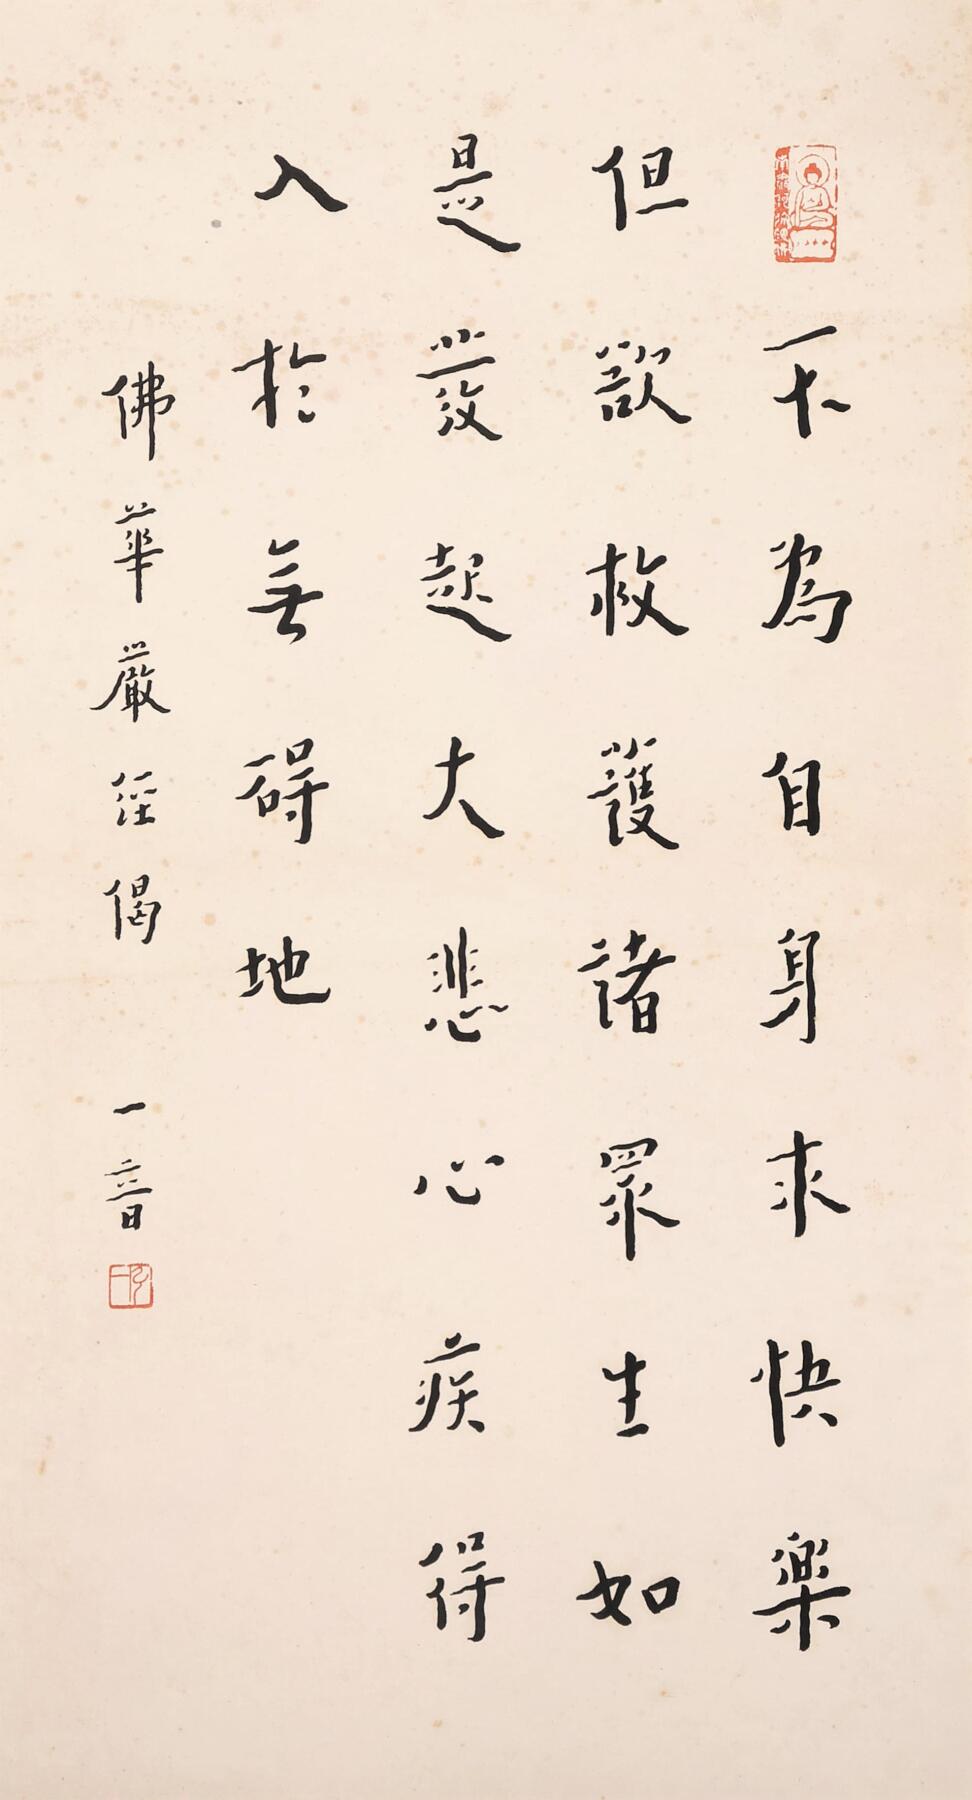 不為自身求快樂
但欲救護諸眾生如
是發起大悲心疾得
入於無碍地
佛華嚴經偈 一音